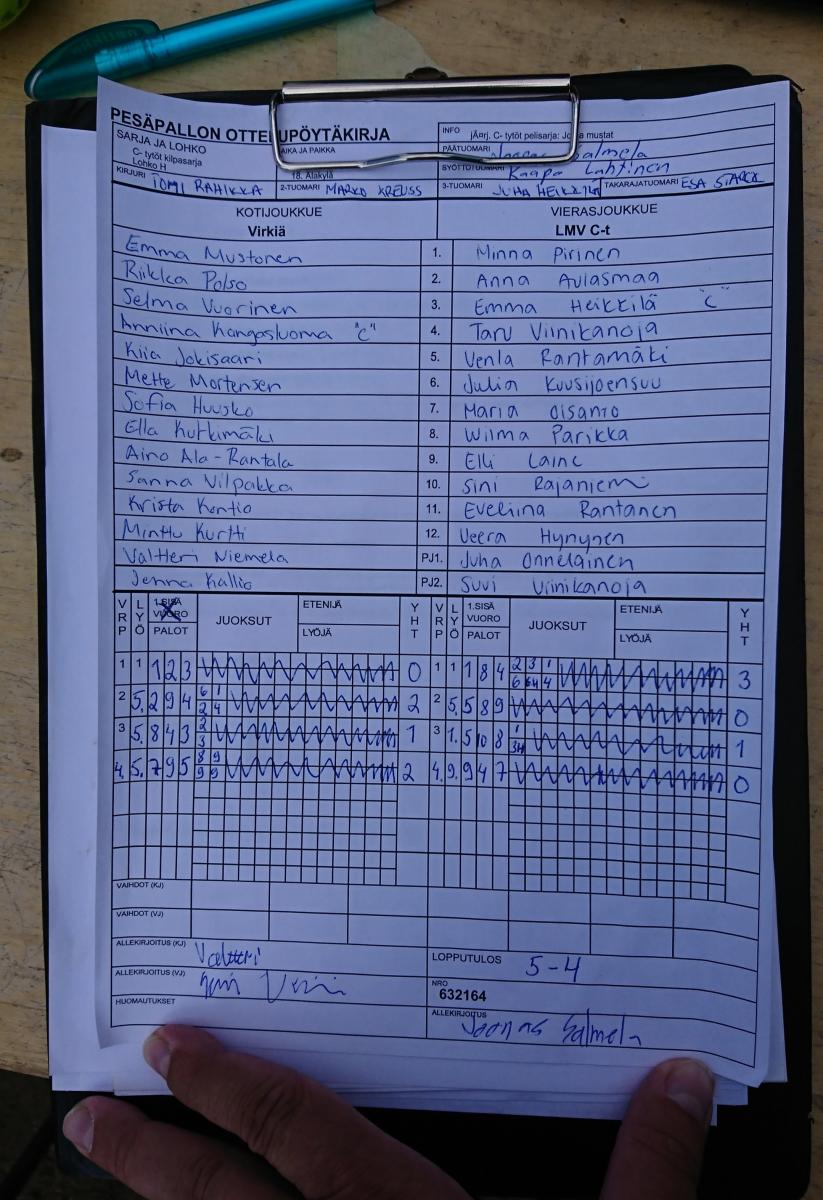 PESÄPALLON OTTELUPÖYTÄKIRJA
SARJA JA LOHKO
C- tytöt kilpasarja
Lohko H
AIKA JA PAIKKA
18. Alakylä
INFO jÄrj. C- tytöt pelisarja: mustat
PÄÄTUOMARI Salmela
SYÖTTÖTUOMARI Kaapo Lahtinen
KIRJURI TOMI RAHIKKA 2-TUOMARI MARKO KREUSS 3-TUOMARI JUHA HEIKKILÄ TAKARAJATUOMARI ESA STARCK
KOTIJOUKKUE VIERASJOUKKUE
Virkiä LMV C-t
Emma Mustonen 1. Minna Pirinen
Riikka Polso 2. Anna Aulasmaa
Selma Vuorinen 3. Emma Heikkilä "C"
Anniina Kangasluoma "C" 4. Taru Viinikanoja
Kiia Jokisaari 5. Venla Rantamäki
Mette Mortensen 6. Julia Kuusijoensuu
Sofia Huusko 7. Maria Oisanto
Ella Kutkimäki 8. Wilma Parikka
Aino Ala-Rantala 9. Elli Laine
Sanna Vilpakka 10. Sini Rajaniemi
Krista Kontio 11. Eveliina Rantanen
Minttu Kurtti 12. Veera Hynynen
Valtteri Niemelä PJ1. Juha Onnelainen
Jenna Kallio PJ2. Suvi Viinikanoja
VRP LYÖ 1.SISÄ VUORO PALOT JUOKSUT ETENIJÄ LYÖJÄ YHT VRP LYÖ 1.SISÄ VUORO PALOT JUOKSUT ETENIJÄ LYÖJÄ YHT
1 1 1 2 3 0 1 1 1 8 4 2 3 1 3
6 4
2 5. 2 9 4 6 1 2 2 5. 5 8 9 0
2 4
3 5. 8 4 3 2 1 3 1. 5 10 8 1 1
3
4. 5. 7 9 5 8 9 2 4. 9. 9 4 7 0
9 9
VAIHDOT (KJ)
VAIHDOT (VJ)
ALLEKIRJOITUS (KJ) Valtteri
LOPPUTULOS 5-4
ALLEKIRJOITUS (VJ)
NRO
632164
HUOMAUTUKSET
ALLEKIRJOITUS Joonas Salmela